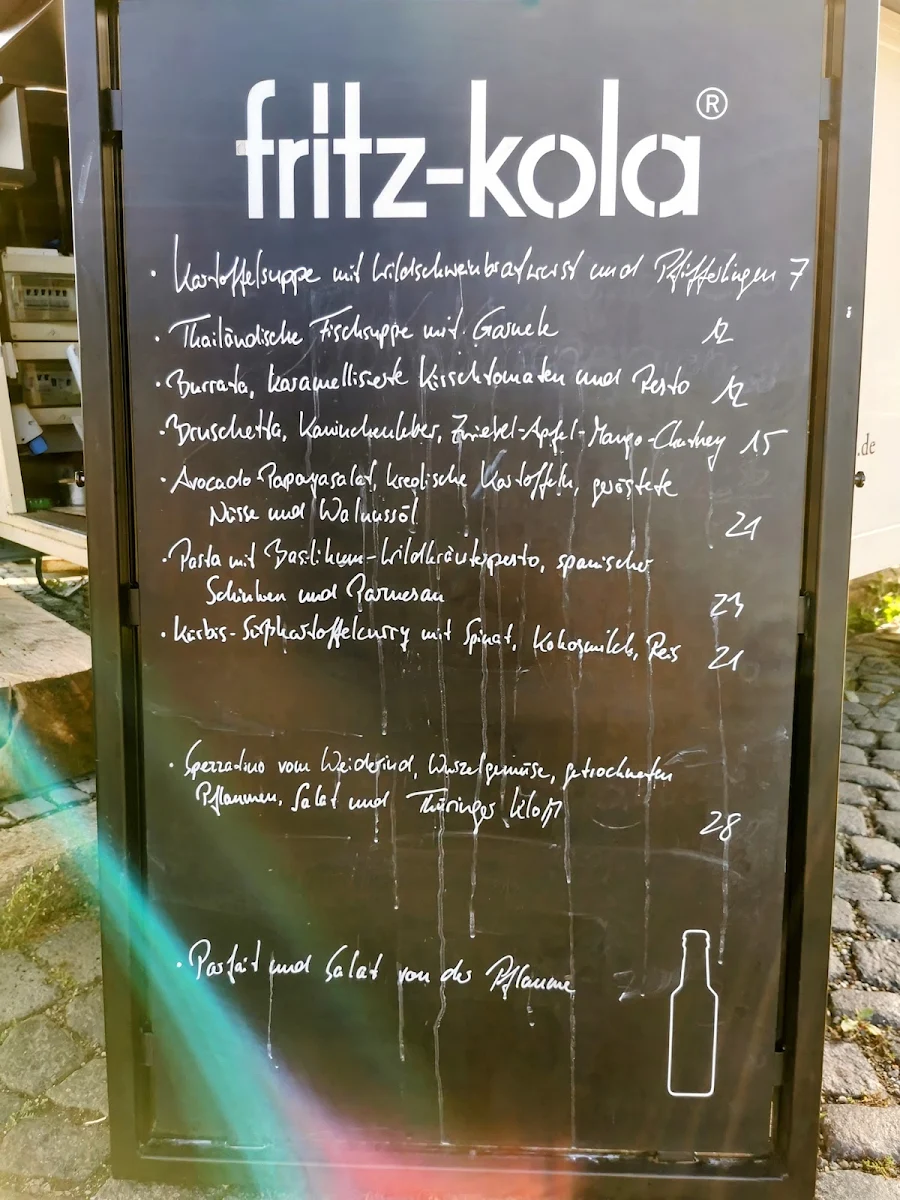 fritz-kola®
· Kartoffelsuppe mit Wildschweinbratwurst und Pfifferlingen 7
· Thailändische Fischsuppe mit Garnele 12
· Burrata, karamellisierte Kirschtomaten und Pesto 12
· Bruschetta, Kaninchenleber, Zwiebel-Apfel-Mango-Chutney 15
· Avocado-Papayasalat, kreolische Kartoffeln, geröstete
Nüsse und Walnussöl 21
· Pasta mit Basilikum-Wildkräuterpesto, spanischer
Schinken und Parmesan 23
· Kürbis-Süßkartoffelcurry mit Spinat, Kokosmilch, Reis 21
· Spezzatino vom Weiderind, Wurzelgemüse, getrockneten
Pflaumen, Salat und Thüringer Kloß 28
· Parfait und Salat von der Pflaume
.de